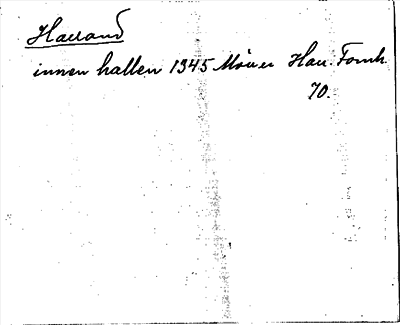 Halland
innan hallen 1345 Hau. Fornh
70.